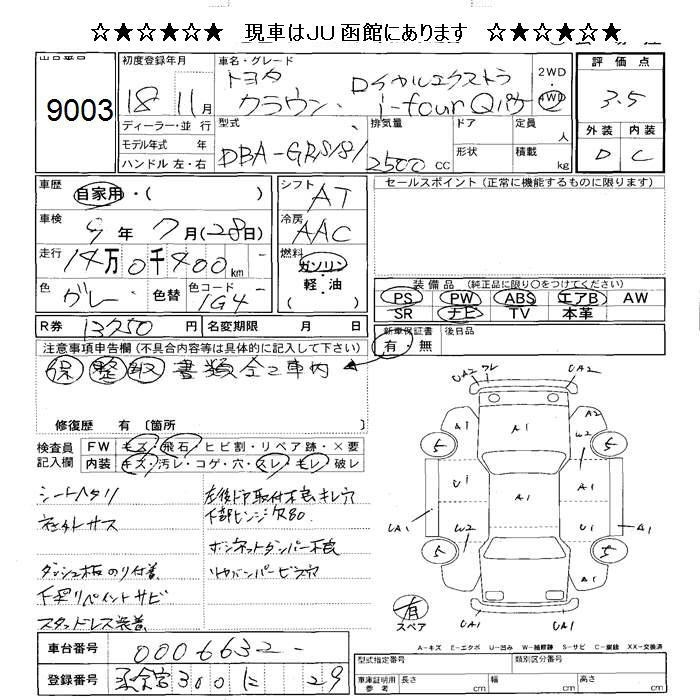 ☆★☆★☆★☆ 現車はJU函館にあります ☆★☆★☆★☆
9003
初度登録年月
18 11月
ディーラー・並 行
モデル年式 年
ハンドル 左・右
車名・グレード
トヨタ ロイヤルエクストラ
クラウン i-four Qパケ
2WD
・
4WD
型式
DBA-GRS181
排気量
2500 cc
ドア
定員 人
形状
積載 kg
評 価 点
3.5
外 装 内 装
D C
車歴 自家用・( )
車検 9年 7月(-28日)
走行 14万0千400 km
色 グレー 色替 色コード 1G4
シフト AT
冷房 AAC
燃料 ガソリン・軽・油
セールスポイント (正常に機能するものに限ります)
装 備 品 (純正品に限り○をつけてください)
PS PW ABS エアB AW
SR ナビ TV 本革
R券 13250 円 名変期限 月 日
新車保証書 有・無
後日品
注意事項申告欄 (不具合内容等は具体的に記入して下さい)
保 整 取 書類全て車内
修復歴 有 〔箇所
検査員記入欄
FW キズ・飛石・ヒビ割・リペア跡・×要
内装 キズ・汚レ・コゲ・穴・スレ・キレ・破レ
シートヘタリ
左後ドア取付不良キレ穴
下部ヒンジ欠品
ボンネットダンパー不良
ダッシュ板のり付着
リヤバンパービス穴
下廻リペイントサビ
スタッドレス装着
UA2 フレ UA2
A1 A1 A2
5 5
W2
U1 A1 U1
UA1 W2 U1 A1
5 5
A1 A1
有
スペア
A1
A-キズ E-エクボ U-凹み W-補修跡 S-サビ C-腐蝕 XX-交換済
車台番号 0006632-
登録番号 300 に 29
型式指定番号
類別区分番号
車庫証明用参 考
長さ cm
幅 cm
高さ cm